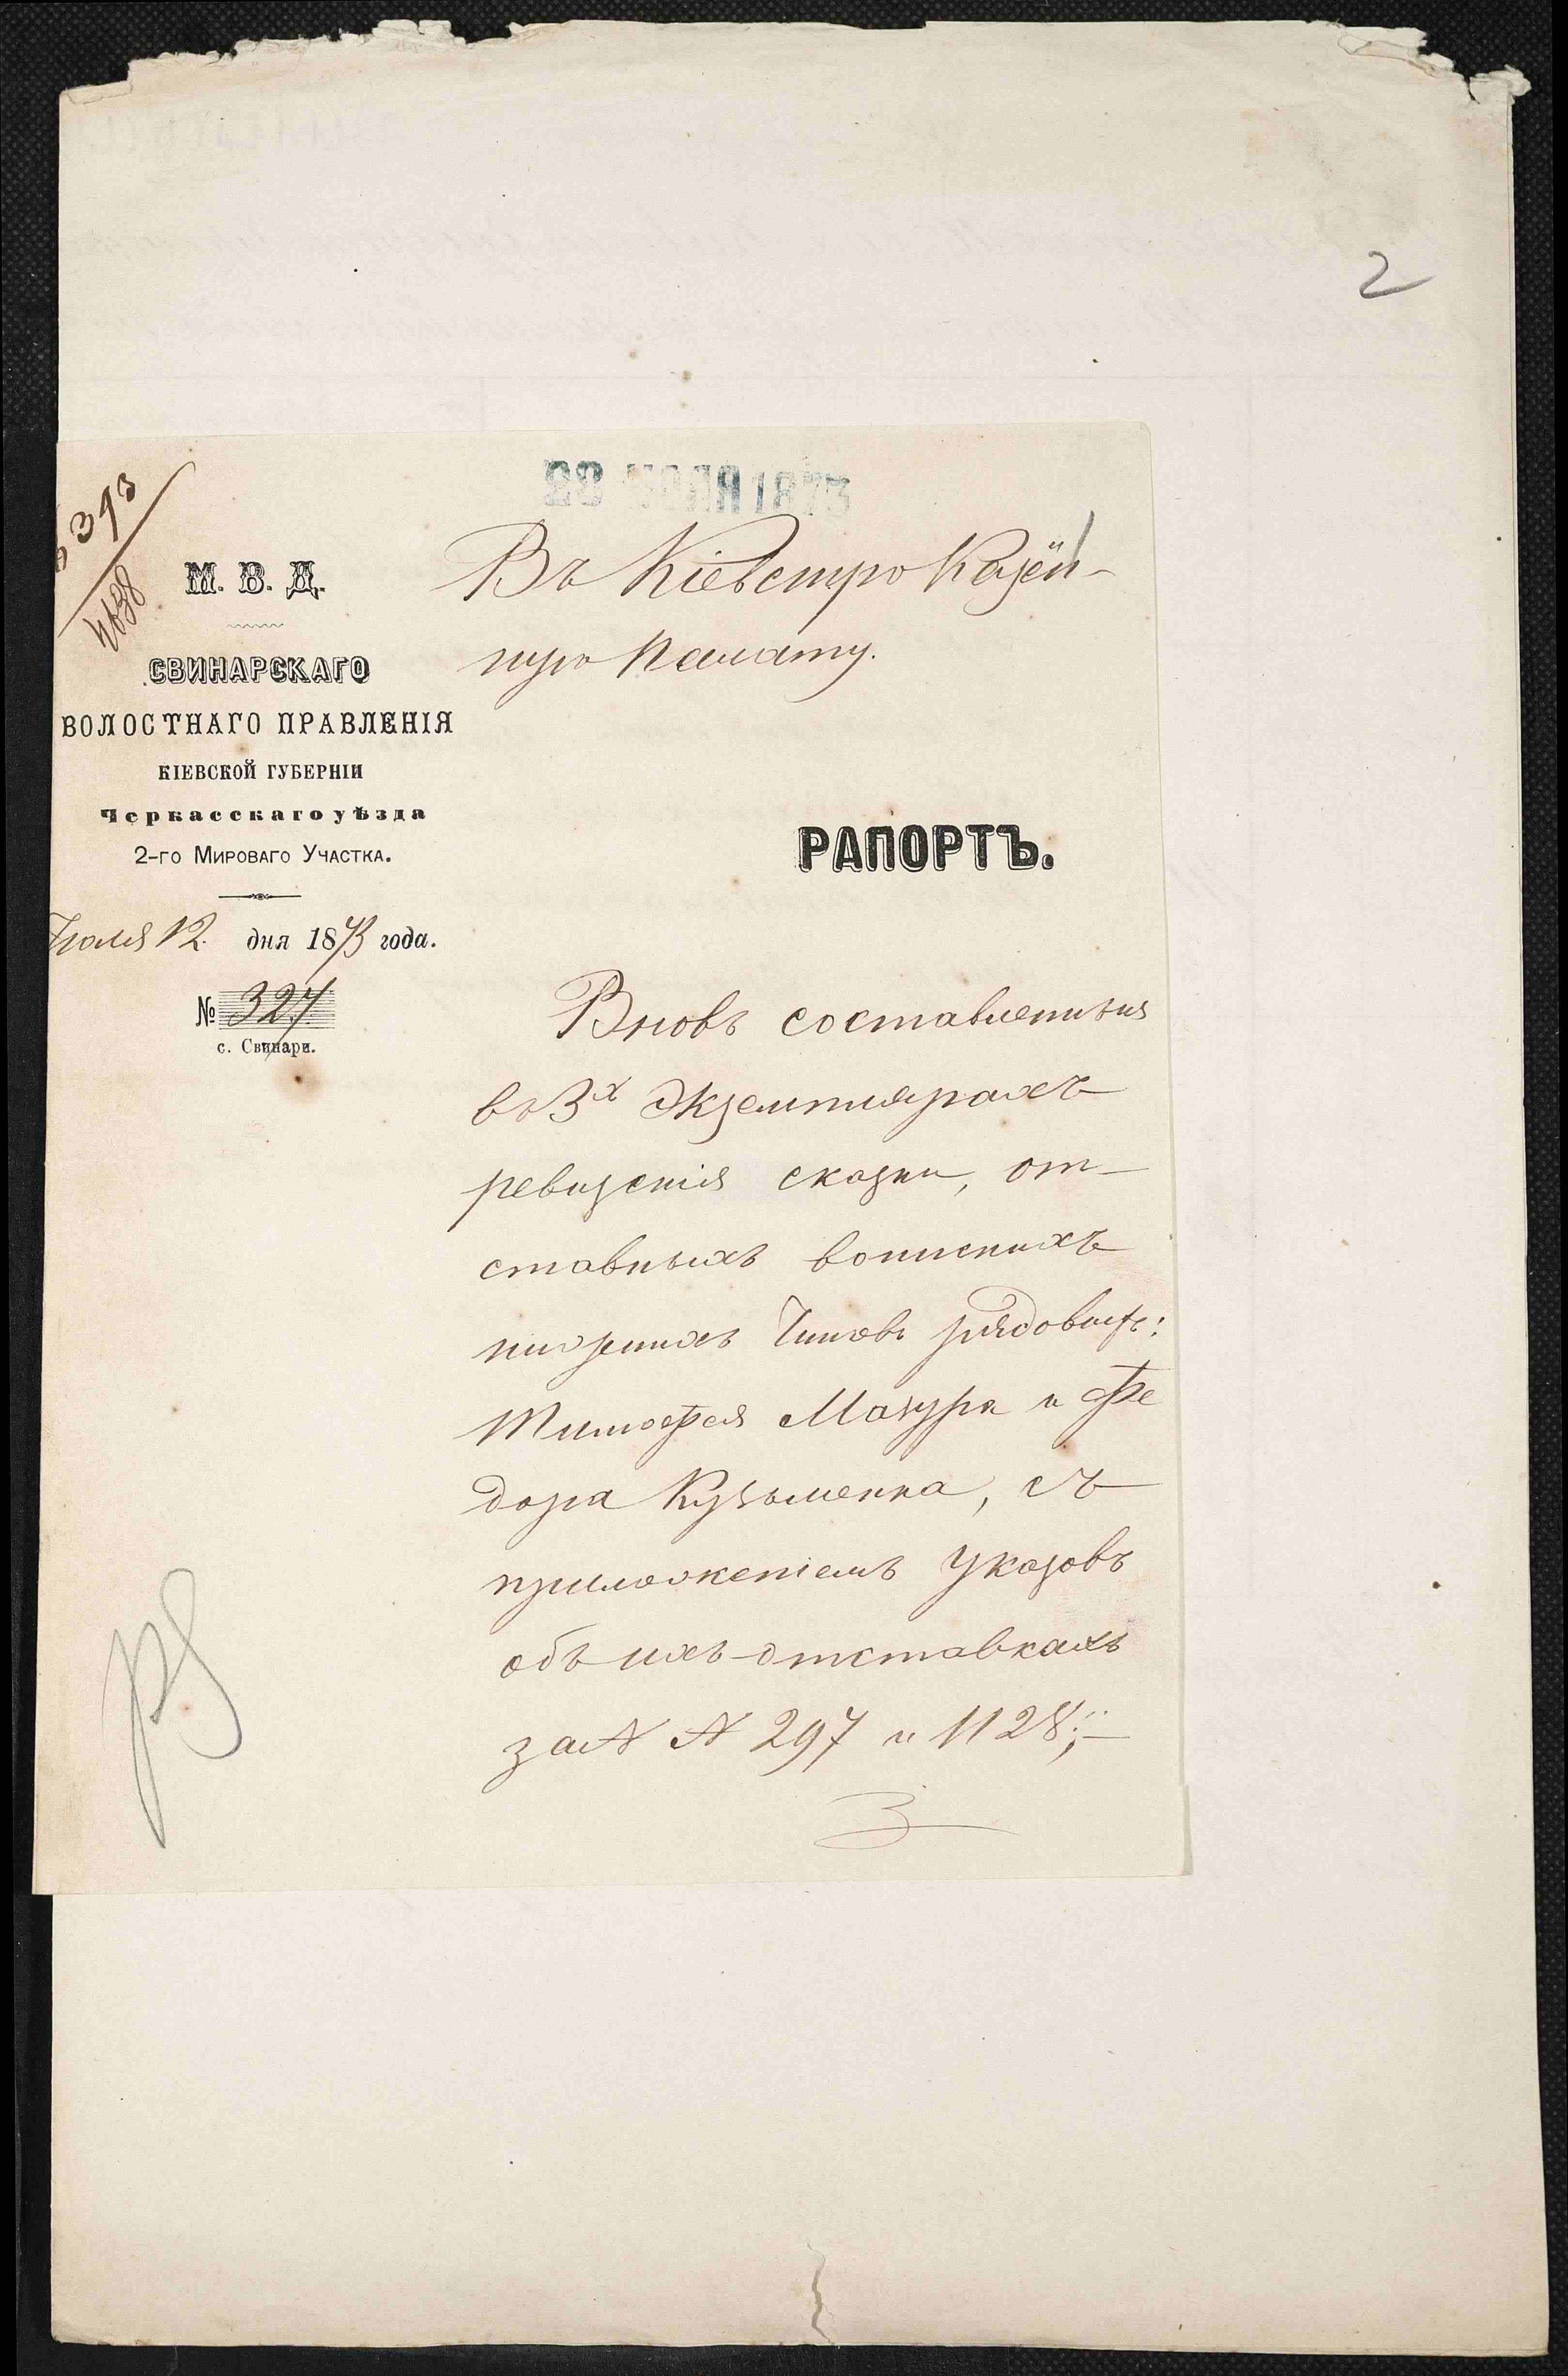 2
28 ИЮЛЯ 1873
М. В. Д.
СВИНАРСКАГО
ВОЛОСТНАГО ПРАВЛЕНІЯ
КІЕВСКОЙ ГУБЕРНІИ
Черкасскаго уѣзда
2-го Мироваго Участка.
Іюля 12. дня 1873 года.
№ 327
с. Свинари.
Въ Кіевскую Казён-
ную Палату.
РАПОРТЪ.
Вновь составленныя
въ 3х Экземплярахъ
ревизскія сказки, от-
ставныхъ воинскихъ
нижнихъ Чиновъ рядовыхъ:
Тимофея Мазура и Фе
дора Кузьменка, съ
приложеніемъ Указовъ
объ ихъ отставкахъ
за N N 297 и 1128;